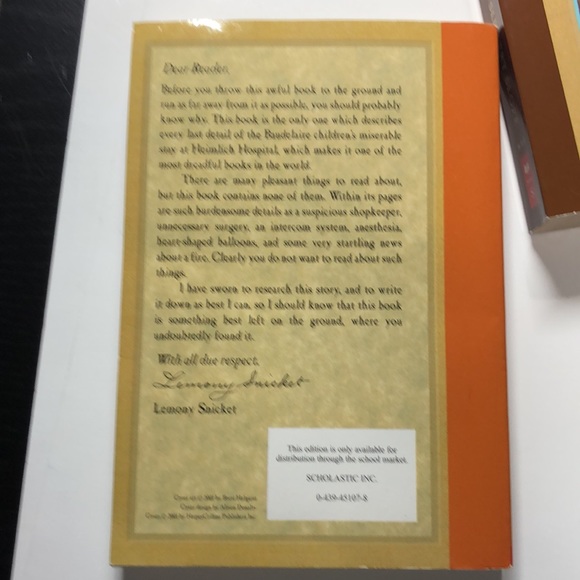 Dear Reader,
Before you throw this awful book to the ground and
run as far away from it as possible, you should probably
know why. This book is the only one which describes
every last detail of the Baudelaire children's miserable
stay at Heimlich Hospital, which makes it one of the
most dreadful books in the world.
There are many pleasant things to read about,
but this book contains none of them. Within its pages
are such burdensome details as a suspicious shopkeeper,
unnecessary surgery, an intercom system, anesthesia,
heart-shaped balloons, and some very startling news
about a fire. Clearly you do not want to read about such
things.
I have sworn to research this story, and to write
it down as best I can, so I should know that this book
is something best left on the ground, where you
undoubtedly found it.
With all due respect,
Lemony Snicket
Lemony Snicket
This edition is only available for
distribution through the school market.
SCHOLASTIC INC.
0-439-45107-8
Cover art © by Brett Helquist
Cover design by Alison Donalty
Cover © by HarperCollins Publishers Inc.